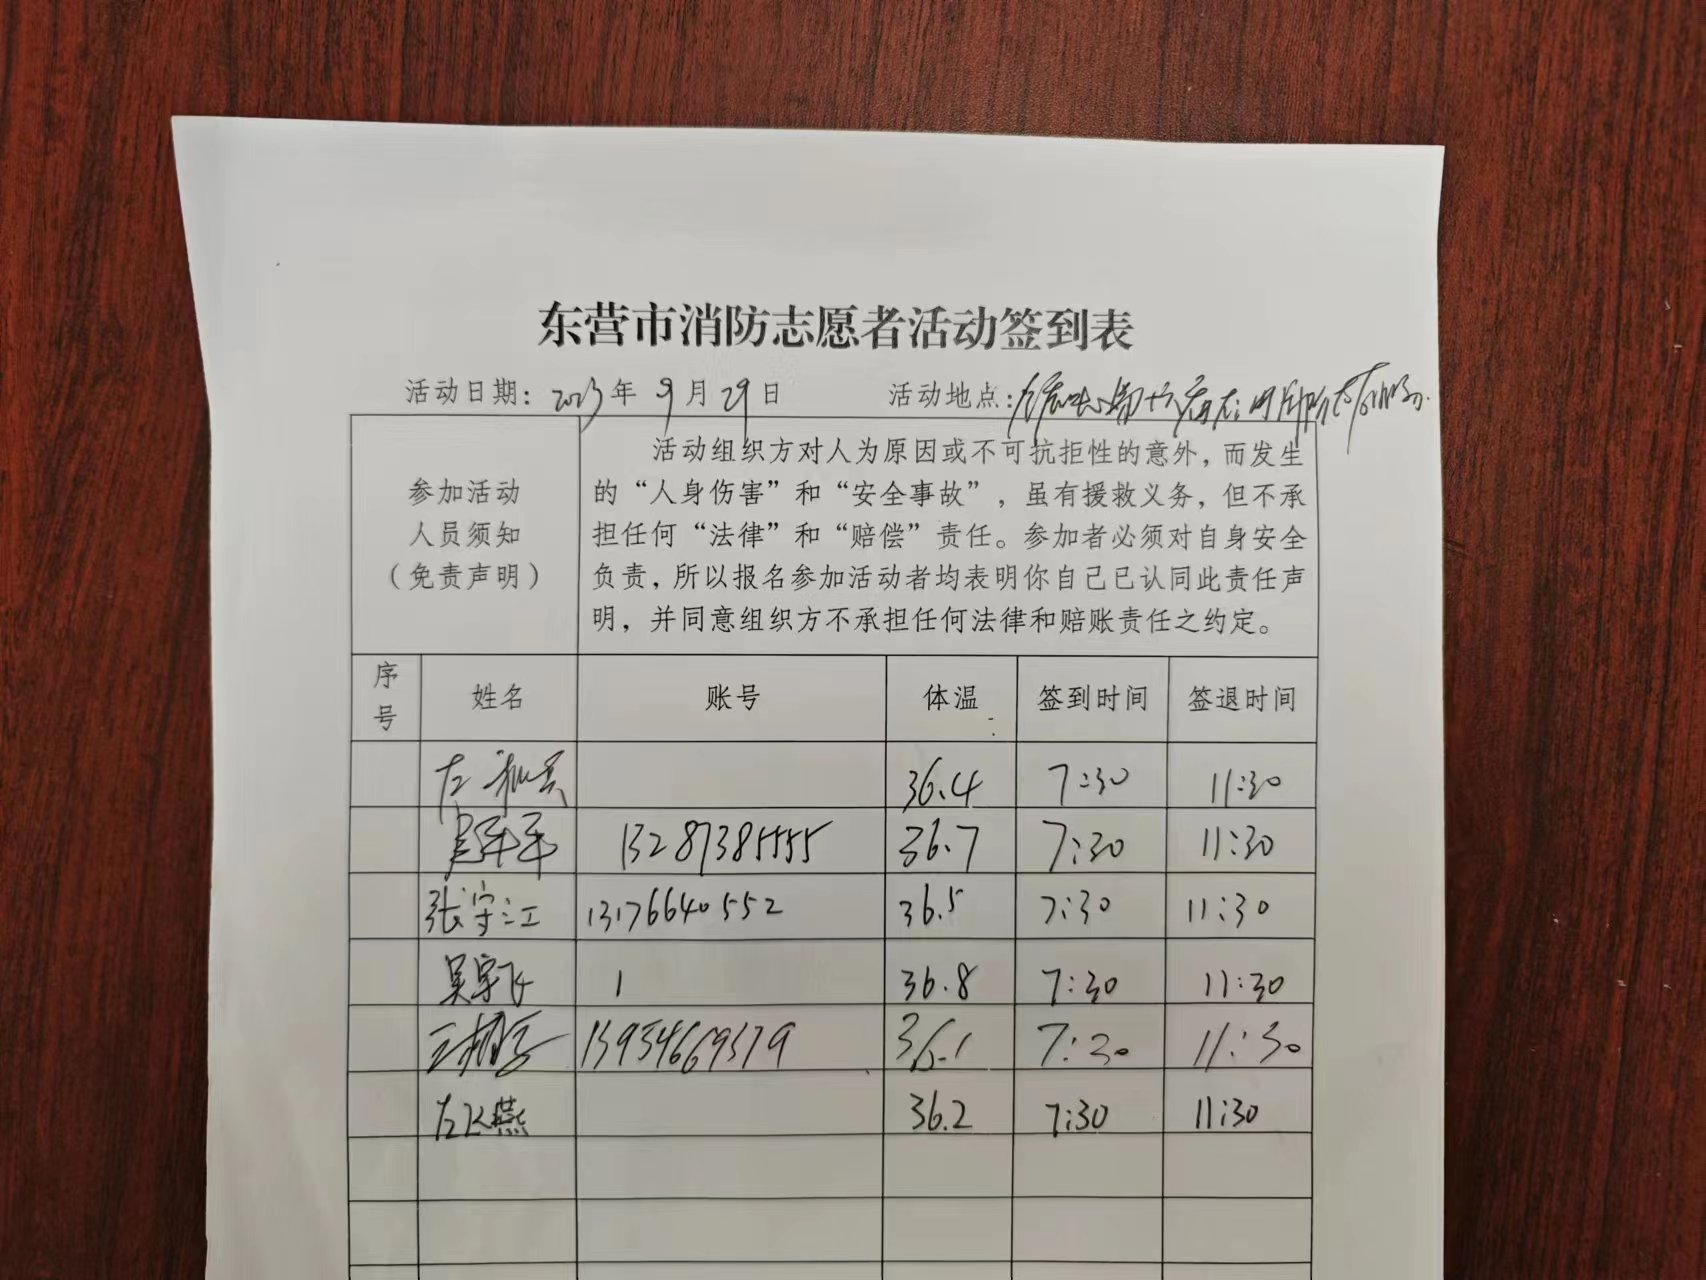 东营市消防志愿者活动签到表
活动日期：2023年9月29日 活动地点：
参加活动
人员须知
（免责声明）
活动组织方对人为原因或不可抗拒性的意外，而发生
的“人身伤害”和“安全事故”，虽有援救义务，但不承
担任何“法律”和“赔偿”责任。参加者必须对自身安全
负责，所以报名参加活动者均表明你自己已认同此责任声
明，并同意组织方不承担任何法律和赔账责任之约定。
序号 姓名 账号 体温 签到时间 签退时间
左 36.4 7:30 11:30
13287385555 36.7 7:30 11:30
张守江 13176640552 36.5 7:30 11:30
吴宇飞 1 36.8 7:30 11:30
王 13954669379 36.1 7:30 11:30
左飞燕 36.2 7:30 11:30